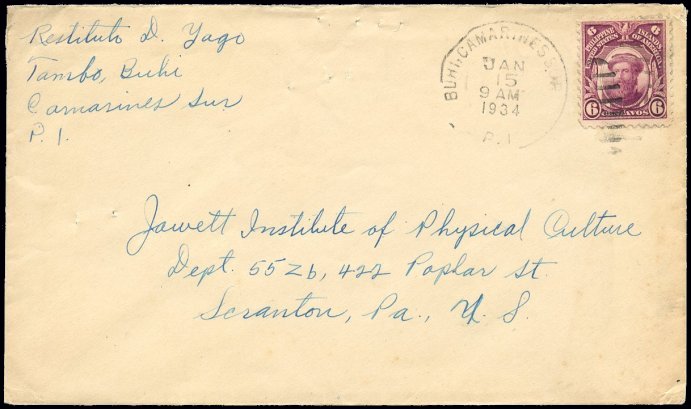 Restituto D. Yago
Tambo, Buhi
Camarines Sur
P. I.
BUHI, CAMARINES S.
JAN
15
9 AM
1934
P. I.
6 PHILIPPINE ISLANDS 6
UNITED STATES OF AMERICA
6 CENTAVOS 6
Jowett Institute of Physical Culture
Dept. 55Zb, 422 Poplar St.
Scranton, Pa., U. S.